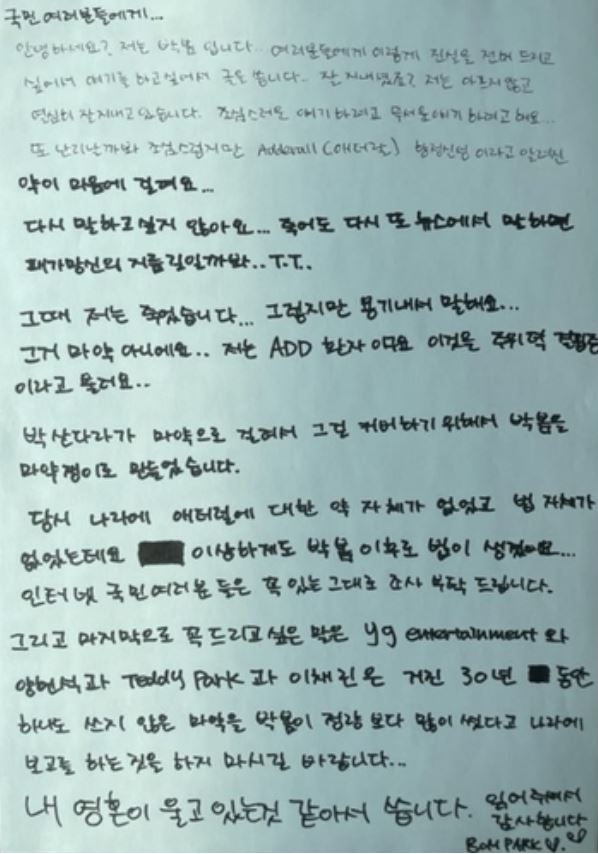 국민 여러분들에게...
안녕하세요? 저는 박봄 입니다.. 여러분들에게 이렇게 진실을 전해 드리고
싶어서 얘기를 하고싶어서 글을 씁니다.. 잘 지내셨죠? 저는 아프지않고
열심히 잘지내고 있습니다. 조심스러운 얘기 하려고 무서운얘기 하려고 해요...
또 난리날까봐 조심스럽지만 Adderall (애더럴) 향정신성 이라고 알려진
약이 마음에 걸려요...
다시 말하고싶지 않아요... 죽어도 다시 또 뉴스에서 말하면
패가망신의 지름길일까봐..T.T..
그때 저는 죽었습니다... 그렇지만 용기내서 말해요...
그거 마약 아니에요.. 저는 ADD 환자 이구요 이것을 주위력 결핍증
이라고 불러요..
박산다라가 마약으로 걸려서 그걸 커버하기 위해서 박봄을
마약쟁이로 만들었습니다.
당시 나라에 애더럴에 대한 약 자체가 없었고 법 자체가
없었는데요 이상하게도 박봄 이후로 법이 생겼어요...
인터넷 국민여러분 들은 꼭 있는그대로 조사 부탁 드립니다.
그리고 마지막으로 꼭 드리고싶은 말은 yg entertainment 와
양현석과 Teddy Park 과 이채린은 거진 30년 동안
하나도 쓰지 않은 마약을 박봄이 정량 보다 많이 썼다고 나라에
보고를 하는 것을 하지 마시길 바랍니다...
내 영혼이 울고있는것 같아서 씁니다. 읽어주셔서
감사합니다
BOM PARK